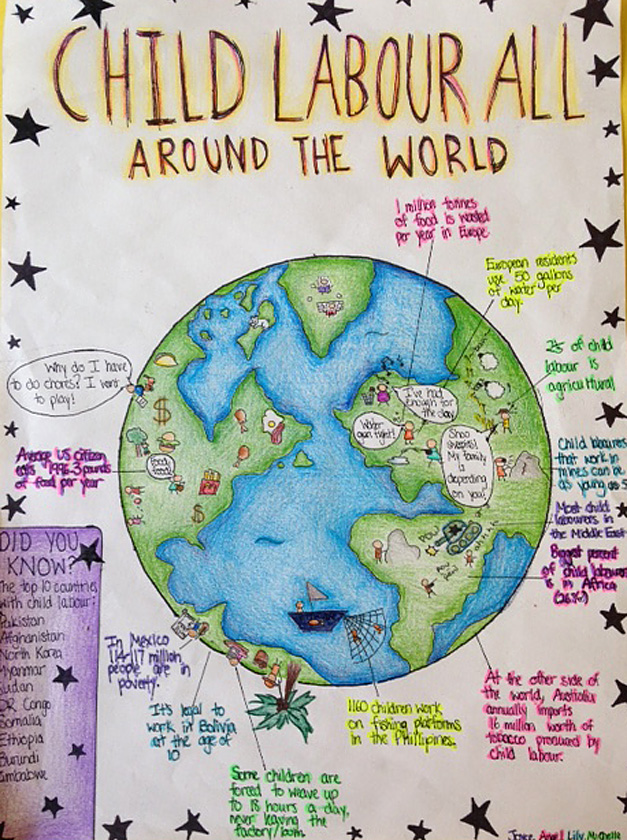 CHILD LABOUR ALL
AROUND THE WORLD
1 million tonnes
of food is wasted
per year in Europe
European residents
use 50 gallons
of water per
day.
Why do I have
to do chores? I want
to play!
I've had
enough for
the day
Water
Shoo
sheeple!
My family
is
depending
on you!
of child
labour is
agricultural
Child labourers
that work in
mines can be
as young as 5
Average US citizen
eats 1996.3 pounds
of food per year
food
food!
Most child
labourers in
the Middle East
Biggest percent
of child labourers
is in Africa
POW
DID YOU
KNOW?
The top 10 countries
with child labour:
Pakistan
Afghanistan
North Korea
Myanmar
Sudan
DR Congo
Somalia
Ethiopia
Burundi
Zimbabwe
In Mexico
11.4-11.7 million
people are in
poverty.
It's legal to
work in Bolivia
at the age of
10
1160 children work
on fishing platforms
in the Phillipines.
At the other side of
the world, Australia
annually imports
16 million worth of
tobacco produced by
child labour.
Some children are
forced to weave up
to 18 hours a day,
never leaving the
factory/loom.
Joyce, Angel, Lily, Michelle